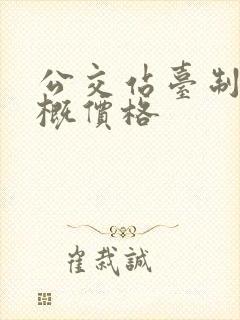 公交估臺制
概價格
崔栽誠